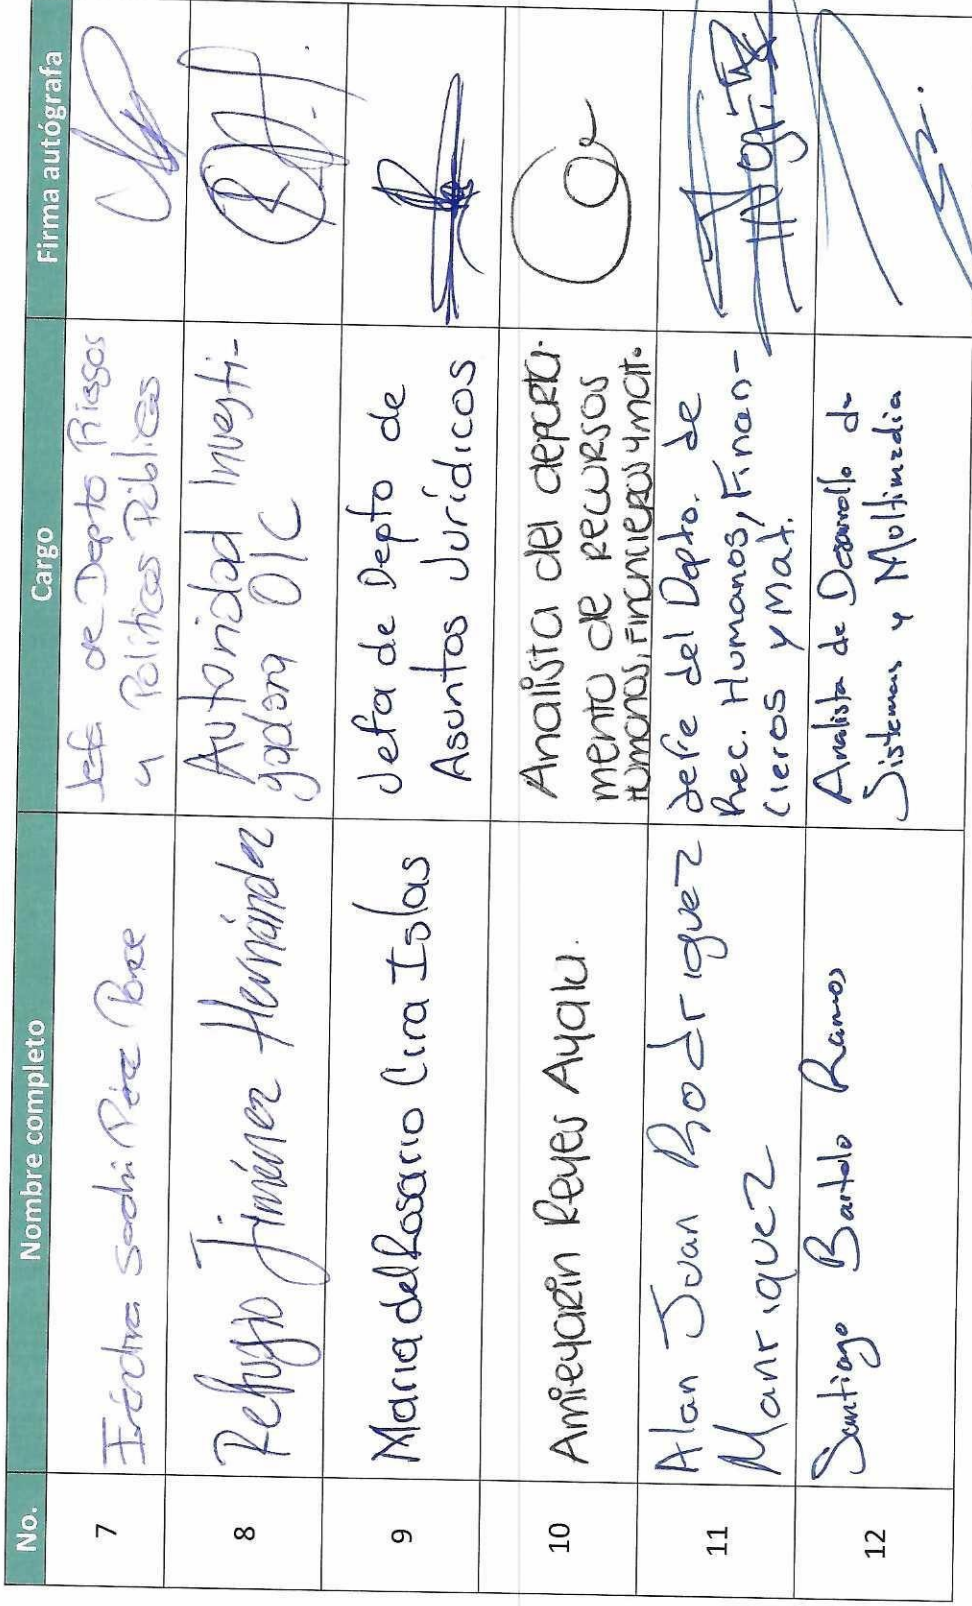 No. Nombre completo Cargo Firma autógrafa
7 Pérez Ponce
Jefa de Depto Riesgos
y Políticas Públicas
8 Refugio Jiménez Hernández
Autoridad Investi-
gadora OIC
9 Maria del Rosario Cera Islas
Jefa de Depto de
Asuntos Jurídicos
10 Amieyarin Reyes Ayala.
Analista del departa-
mento de recursos
Humanos, Financieros y mat.
11 Alan Juan Rodriguez
Manriquez
Jefe del Depto. de
Rec. Humanos, Finan-
cieros y Mat.
12 Santiago Bartolo Ramos
Analista de Desarrollo de
Sistemas y Multimedia